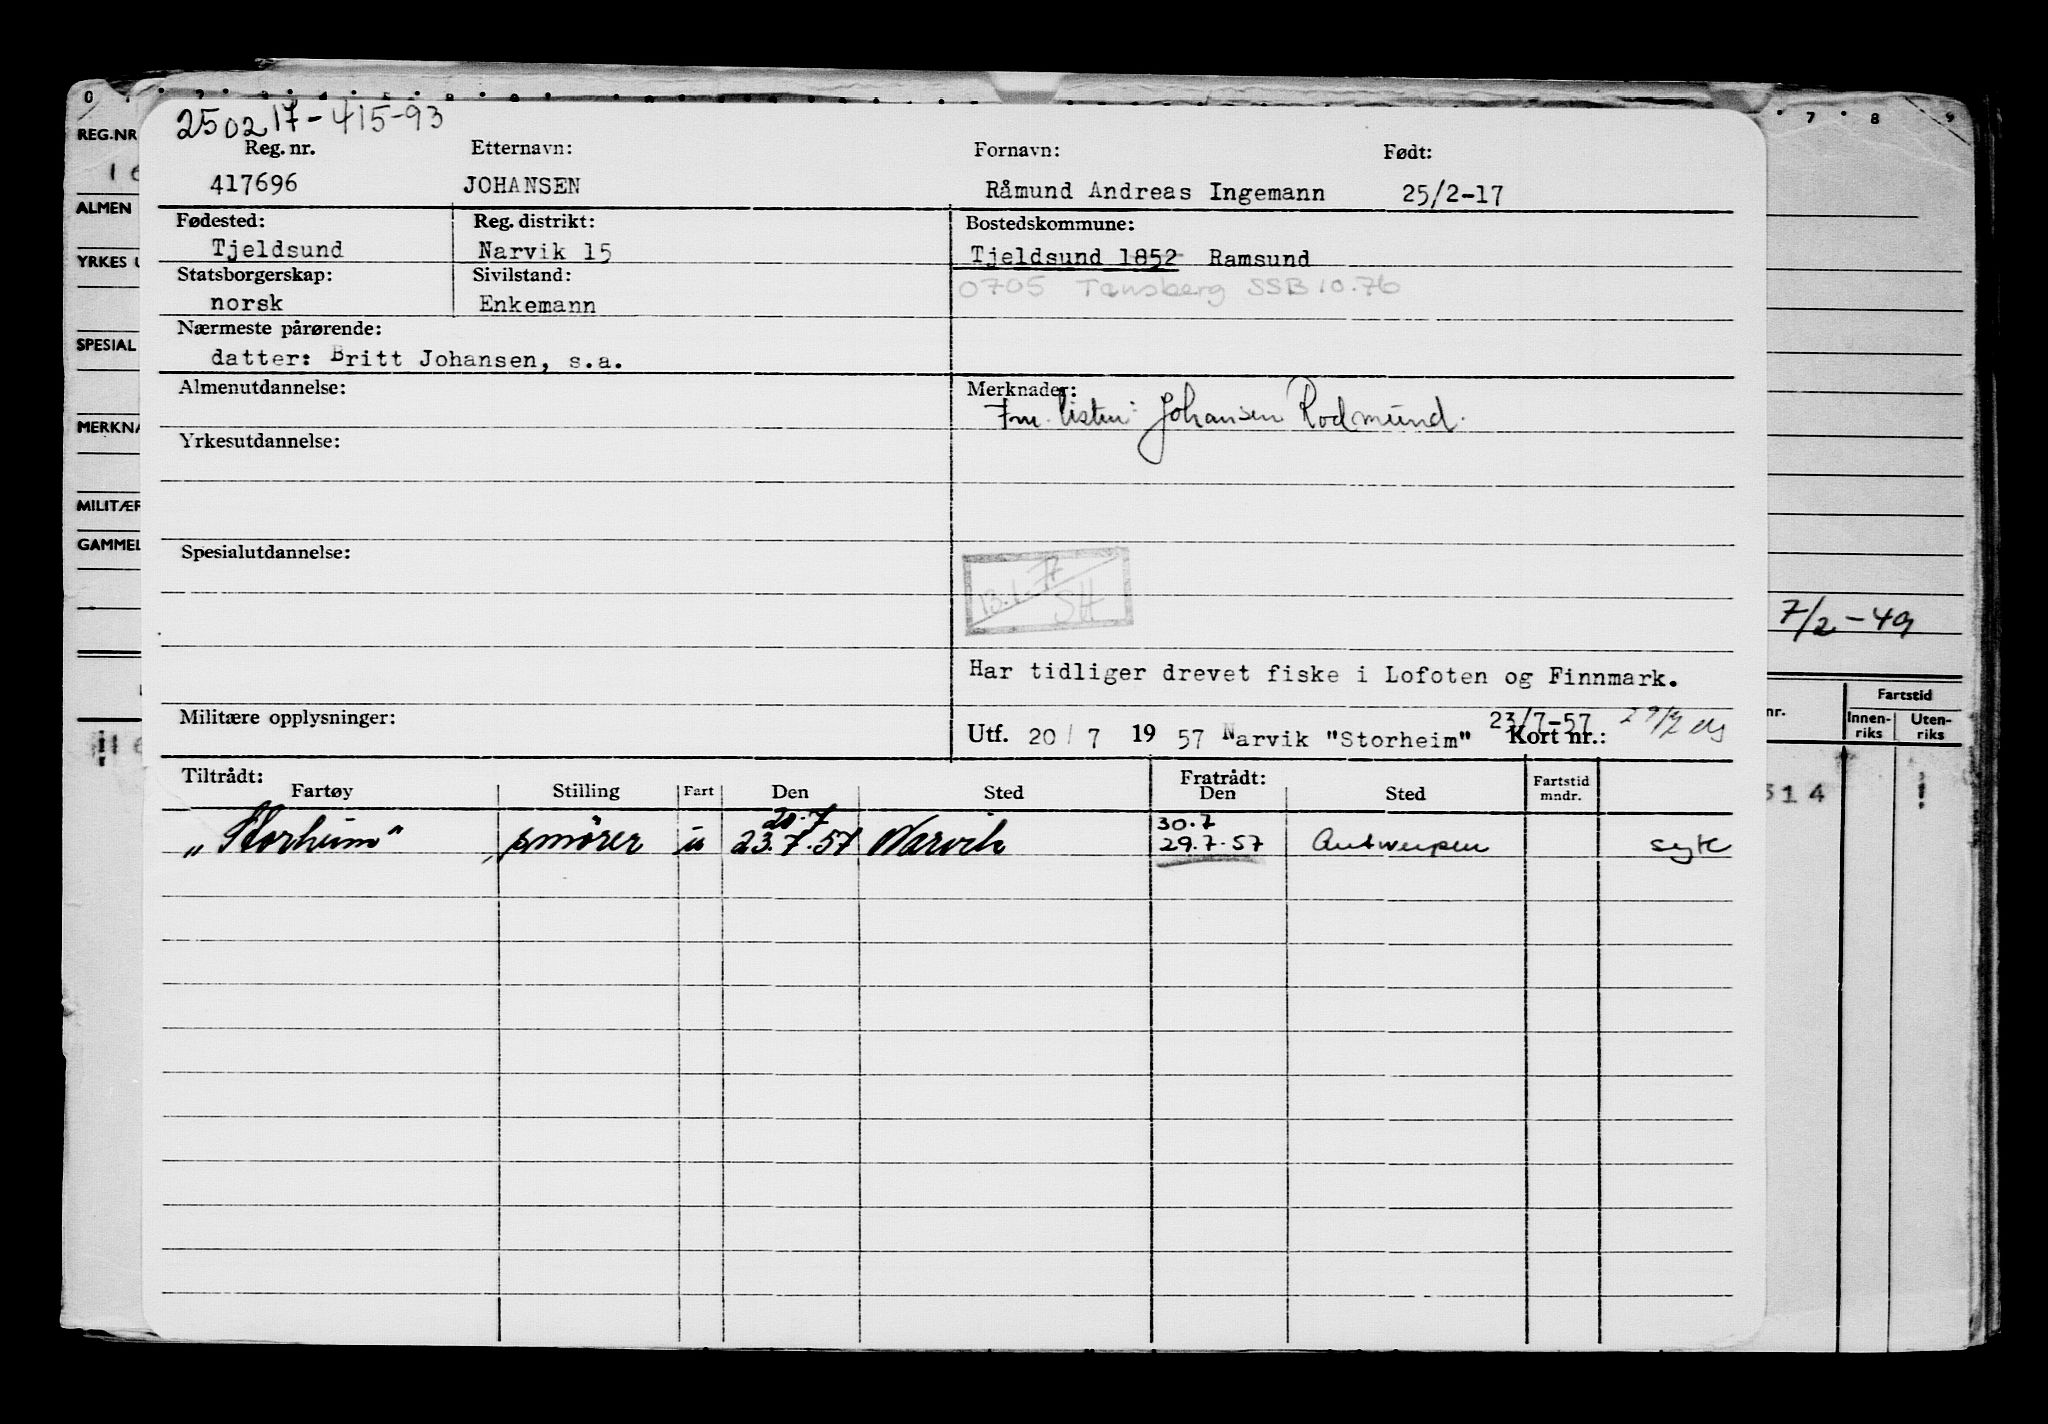 0
7 8 9
REG.NR
250217-415-93
Reg. nr. Etternavn: Fornavn: Født:
417696 JOHANSEN Råmund Andreas Ingemann 25/2-17
ALMEN
Fødested: Reg. distrikt: Bostedskommune:
Tjeldsund Narvik 15 Tjeldsund 1852 Ramsund
YRKES U
Statsborgerskap: Sivilstand: 0705 Tønsberg SSB 10.76
norsk Enkemann
Nærmeste pårørende:
SPESIAL
datter: Britt Johansen, s.a.
Almenutdannelse: Merknader:
Johansen Rodmund.
MERKNA
Yrkesutdannelse:
MILITÆR
GAMMEL
Spesialutdannelse:
13.1.77
SH
7/2-49
Har tidliger drevet fiske i Lofoten og Finnmark.
Militære opplysninger: 23/7-57
Utf. 20/7 1957 Narvik "Storheim" Kort nr.:
nr. Fartstid
Innen-riks Uten-riks
Tiltrådt: Fratrådt:
Fartøy Stilling Fart Den Sted Den Sted Fartstid mndr.
20.7 30.7
„Storheim" smører u 23.7.57 Narvik 29.7.57 Antwerpen syk
514